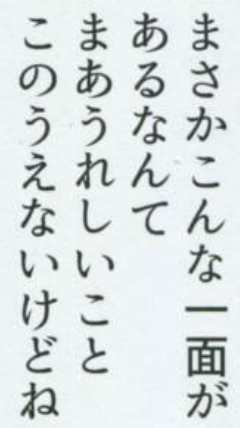 まさかこんな一面が
あるなんて
まあうれしいこと
このうえないけどね